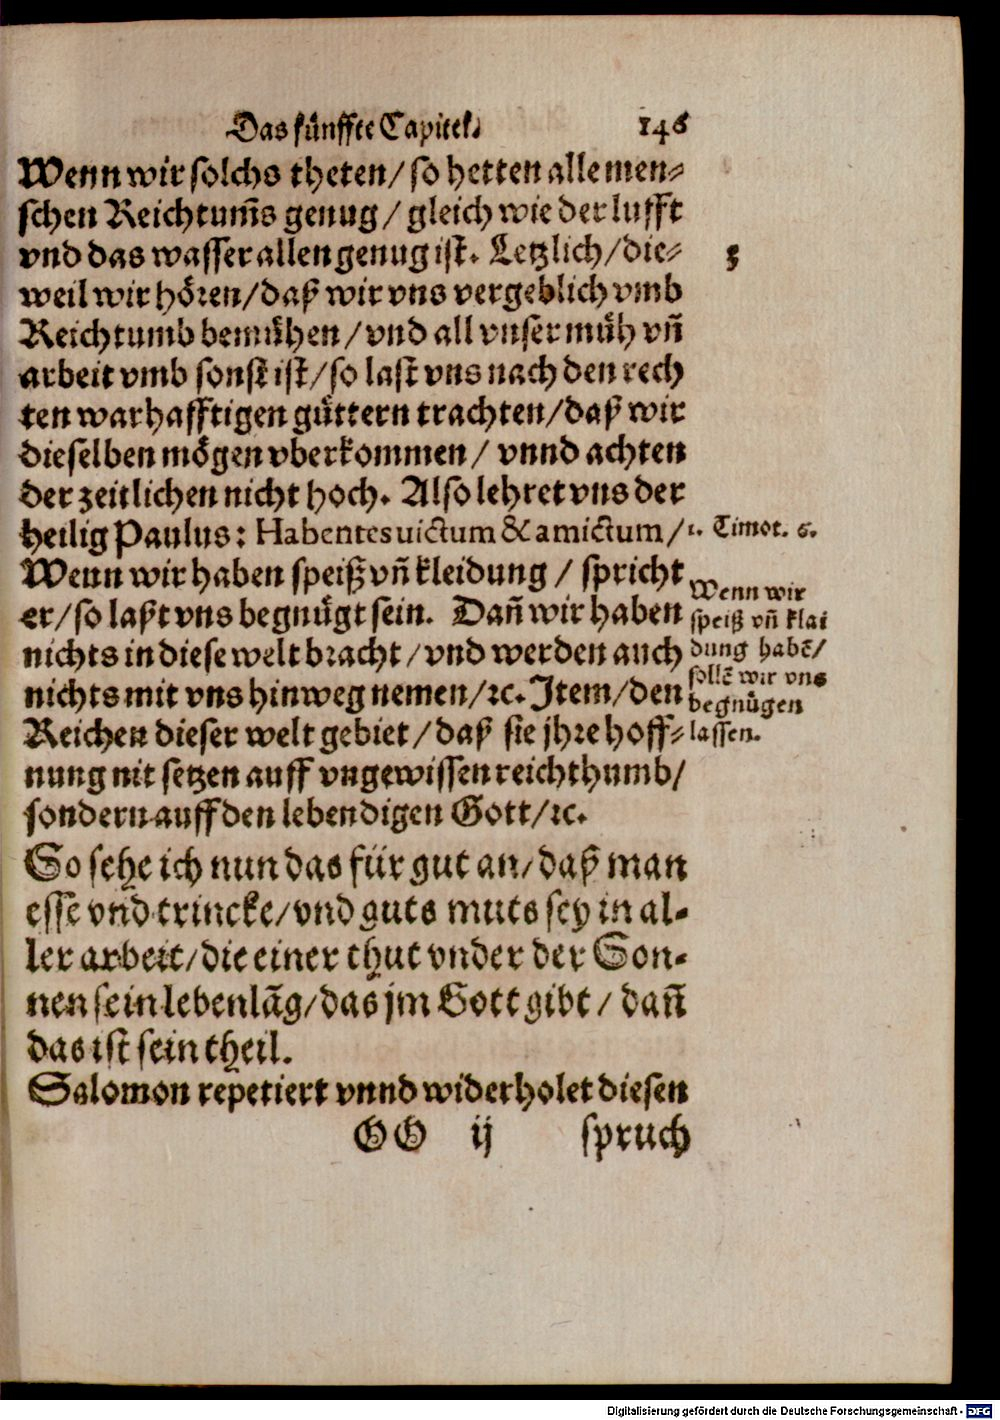 Das fünffte Capitel. 146
Wenn wir solchs theten/ so hetten alle men-
schen Reichtum̃s genug/ gleich wie der lufft
vnd das wasser allen genug ist. Letzlich/ die-
weil wir hören/ daß wir vns vergeblich vmb
Reichtumb bemühen/ vnd all vnser müh vñ
arbeit vmb sonst ist/ so last vns nach den rech
ten warhafftigen güttern trachten/ daß wir
dieselben mögen vberkommen/ vnnd achten
der zeitlichen nicht hoch. Also lehret vns der
heilig Paulus: Habentes uictum & amictum/
Wenn wir haben speiß vñ kleidung/ spricht
er/ so laßt vns begnügt sein. Dañ wir haben
nichts in diese welt bracht/ vnd werden auch
nichts mit vns hinweg nemen/ ꝛc. Item/ den
Reichen dieser welt gebiet/ daß sie jhre hoff-
nung nit setzen auff vngewissen reichthumb/
sondern auff den lebendigen Gott/ ꝛc.
So sehe ich nun das für gut an/ daß man
esse vnd trincke/ vnd guts muts sey in al-
ler arbeit/ die einer thut vnder der Son-
nen sein lebenlãg/ das jm Gott gibt/ dañ
das ist sein theil.
Salomon repetiert vnnd widerholet diesen
GG ij spruch
5
1. Timot. 6.
Wenn wir
speiß vñ klai
dung habẽ/
sollẽ wir vns
begnügen
lassen.
Digitalisierung gefördert durch die Deutsche Forschungsgemeinschaft - DFG